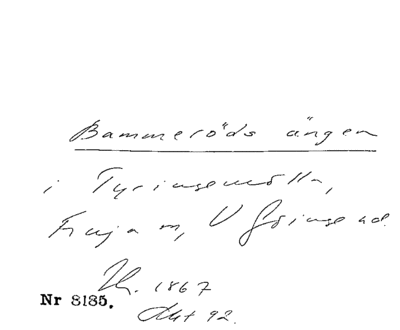 Bammeröds ängen
i Tyringemölla,
Finja sn, V Göinge hd.
1867
Nr 8185.
Akt 92.